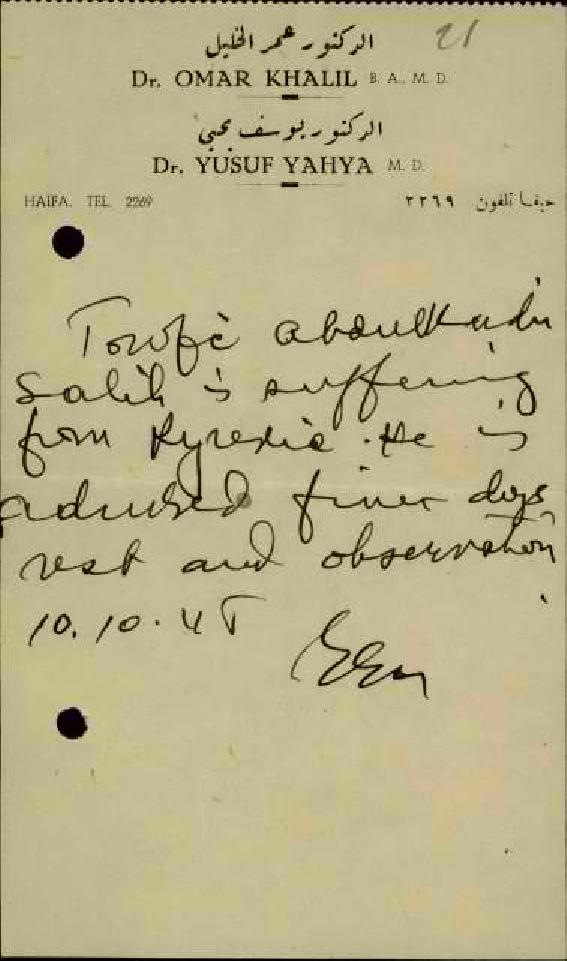 21
الدكتور عمر الخليل
Dr. OMAR KHALIL B. A., M. D.
الدكتور يوسف يحيى
Dr. YUSUF YAHYA M. D.
HAIFA. TEL. 2269 حيفا تلفون ٢٢٦٩
Towfic abdulkadir
Salih is suffering
from Pyrexia. He is
advised days
rest and observation
10.10.45